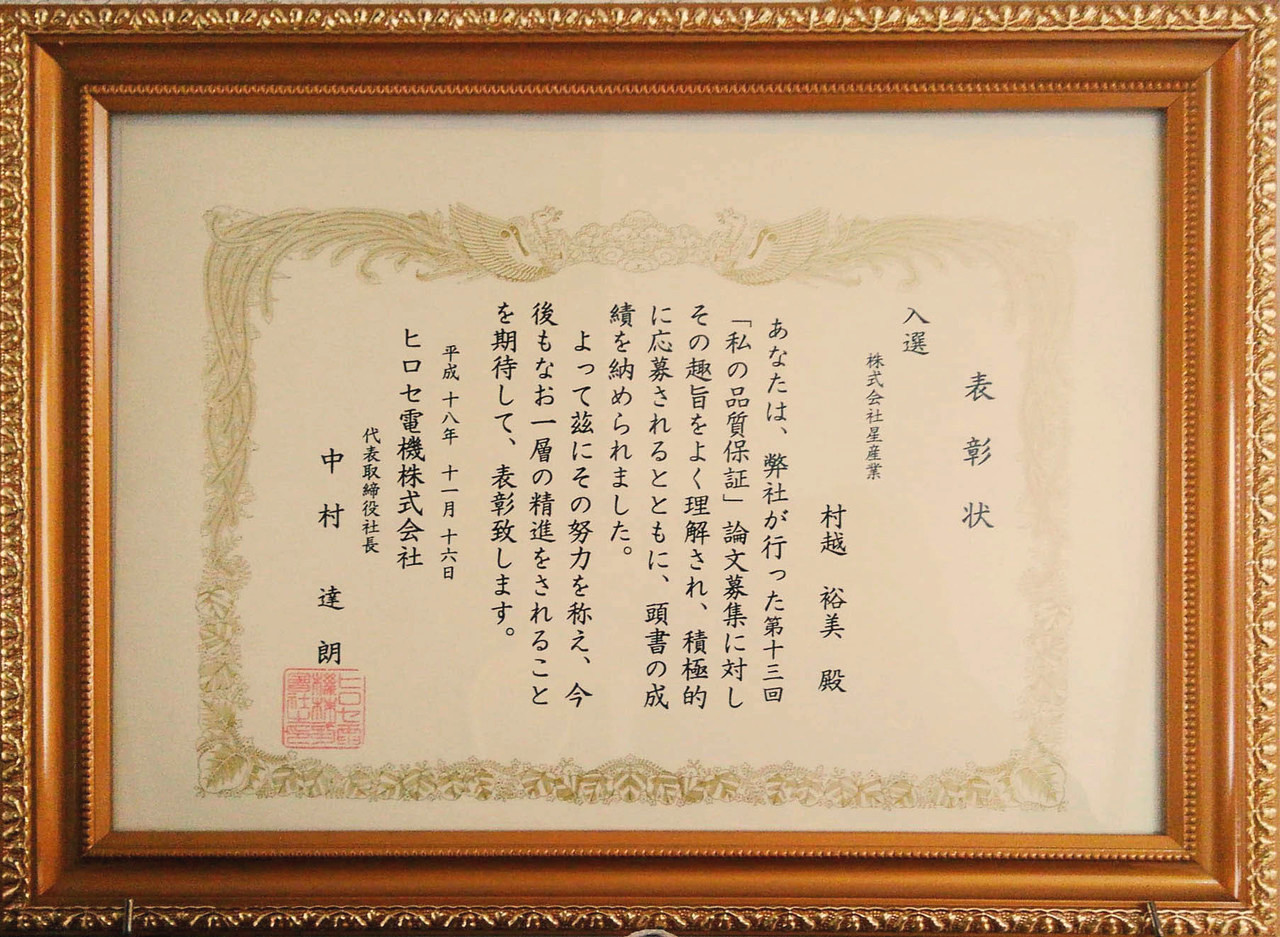 表彰状
入選
株式会社星産業
村越 裕美 殿
あなたは、弊社が行った第十三回
「私の品質保証」論文募集に対し
その趣旨をよく理解され、積極的
に応募されるとともに、頭書の成
績を納められました。
よって茲にその努力を称え、今
後もなお一層の精進をされること
を期待して、表彰致します。
平成 十八年 十一月 十六日
ヒロセ電機株式会社
代表取締役社長
中村 達朗
ヒロセ電
機株式
會社之印